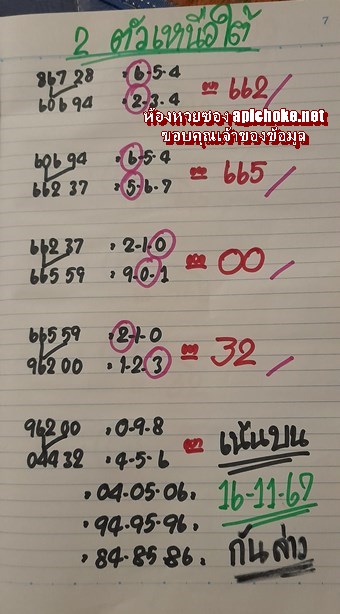 7
2 ตัวเหนือใต้
867 28 : 6-5-4
606 94 : 2-3-4 = 662 /
ห้องหวยซอง apichoke.net
ขอบคุณเจ้าของข้อมูล
606 94 : 6-5-4
662 37 : 5-6-7 = 665 /
662 37 : 2-1-0
665 59 : 9-0-1 = 00 /
665 59 : 2-1-0
962 00 : 1-2-3 = 32 /
962 00 : 0-9-8
044 32 : 4-5-6 = เน้นบน
. 04-05-06. 16-11-67
. 94-95-96.
. 84-85-86. กันล่าง